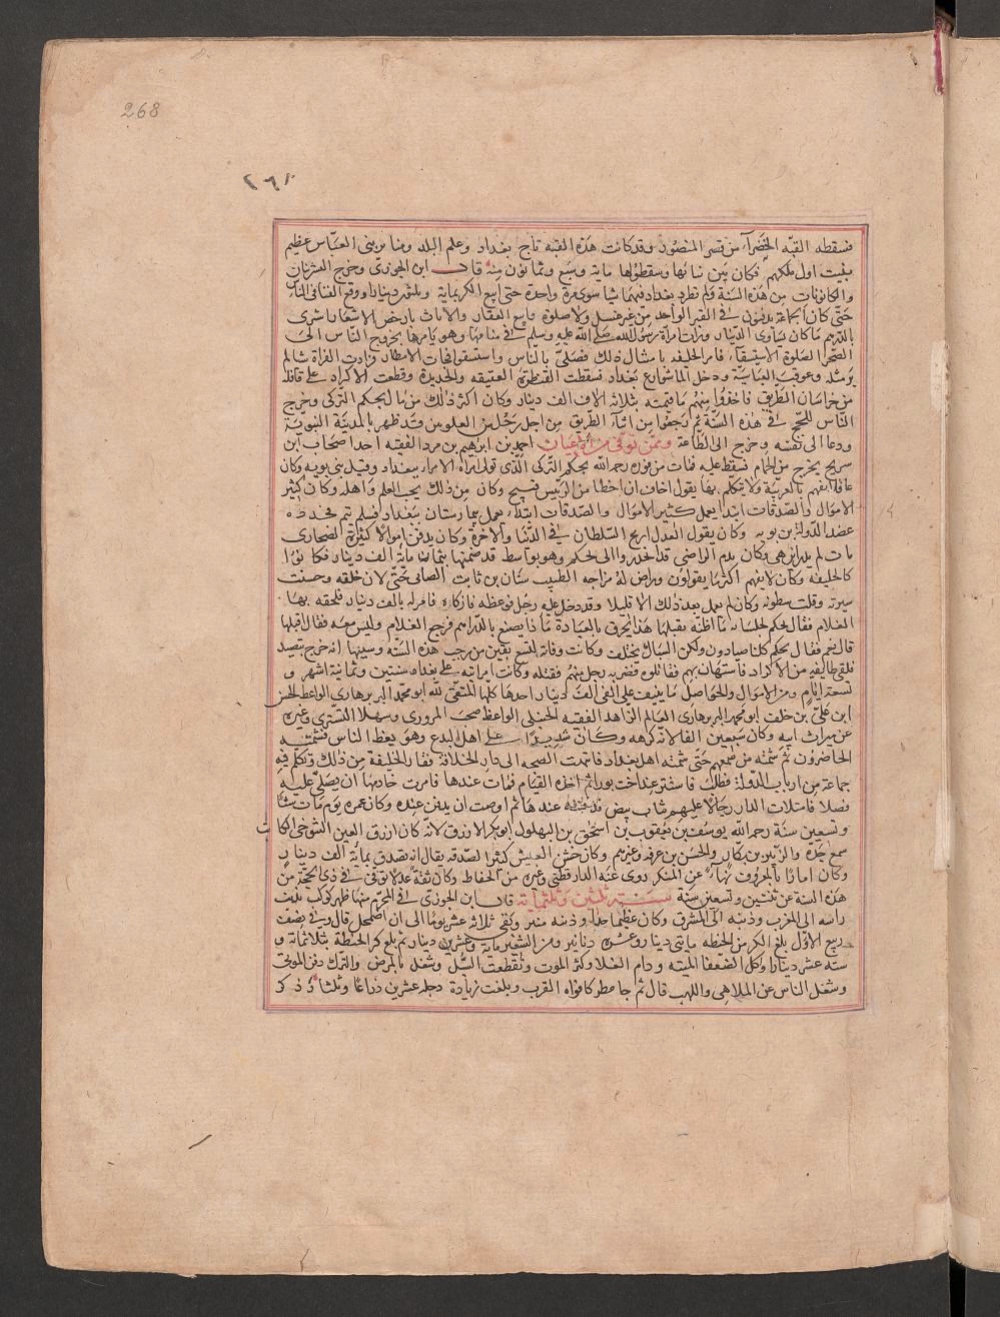 268
٢٦٨
فسقطه القبّه الخضرآء من قصر المنصور وقد كانت هذه القبه تاج بغداد وعلم البلد ومنا بربنى العبّاس عظيم
بنيت اول ملكهم فكان بين بنائها وسقوطها ماية وسبع وثمانون سنة قال ابن الجوزى وخرج التشرينان
والكانونان من هذه السنة ولم تمطر بغداد فيهما شيا سوى مرة واحدة حتى ابيع الكر بماية وثلثين دينارا ووقع الفنا فى الناس
حتى كان الجماعة يدفنون فى القبر الواحد من غير غسل ولا صلوة وابيع العقار والاثاث بارخص الاسعار يشرى
بالدرهم ما كان يساوى الدينار ورات امرأة رسول الله صلى الله عليه وسلم فى منامها وهو يامرها بخروج الناس الى
الصحرا لصلوة الاستسقاء فامر الخليفه بامتثال ذلك فصلى بالناس واستسقوا فجات الامطار وزادت الفراة شيا لم
ير مثله وغرقت العباسية ودخل الما شوارع بغداد فسقطت القنطرة العتيقه والجديدة وقطعت الاكراد على قافلة
من خراسان الطريق فاخذوا منهم ما قيمته ثلاثه الاف الف دينار وكان اكثر ذلك من مال بجكم التركى وخرج
الناس للحج فى هذه السنة ثم رجعوا من اثناء الطريق من اجل رجل من العلويين قد ظهر بالمدينة النبوية
ودعا الى نفسه وخرج الى الطاعة وممن توفى من الاعيان احمد بن ابرهيم بن مرد الفقيه احد اصحاب ابن
سريج يخرج من الحمام فسقط عليه فمات من فوره رحمه الله بجكم التركى الذى تولى امراة الامراء ببغداد وقبل بنى بويه وكان
عاقلا يفهم بالعربية ولا يتكلم بها يقول اخاف ان اخطا من الرئيس قبيح وكان مع ذلك يحب العلم واهله وكان كثير
الاموال والصدقات ابتدا يعمل كثير الاموال والصدقات ابتداء يعمل بيمارستان ببغداد فلم يتم فجدده
عضد الدولة بن بويه وكان يقول العدل اربح السلطان فى الدنيا والاخرة وكان يدفن اموالا كثيرة فى الصحارى
مات لم يدر اين هى وكان ندم الراضى قد انحدروا الى بجكم وهو بواسط قد ضمنها بثمان ماية الف دينار فكانوا
كالخليفه وكان لا يفهم اكثر ما يقولون وراض له مزاجه الطبيب سنان بن ثابت الصابى حتى لان خلقه وحسنت
سيرته وقلت سطوته وكان لم يعمل بعد ذلك الا قليلا وقد دخل عليه رجل فوعظه فابكاه فامر له بالف دينار فلحقه بها
الغلام فقال بجكم لجلساءه ما اظنه يقبلها هذا يحرق بالعبادة ماذا يصنع بالدراهم فرجع الغلام وليس معه فقال اقبلها
قال نعم فقال بجكم كلنا صيادون ولكن الشباك تختلف وكانت وفاته لتسع بقين من رجب هذه السنة وسببها انه خرج يتصيد
فلقى طايفه من الاكراد فاستهان بهم فقاتلوه فضربه رجل منهم فقتله وكانت امرته على بغداد سنتين وثمانية اشهر و
تسعة ايام ومن الاموال والحواصل ما ينيف على الفى الف دينار اخذها كلها المتقى لله ابو محمد البربهارى الواعظ الحسن
ابن على بن خلف ابو محمد البربهارى العالم الزاهد الفقيه الحنبلى الواعظ صحب المروزى وسهلا التسترى وتنزه
عن ميراث ابيه وكان سبعين الفا لانه كرهه وكان شديدا على اهل البدع وهو يعظ الناس فشمته
الحاضرون ثم شمته من سمعهم حتى شمته اهل بغداد فانتهت الضجه الى دار الخلافة فغار الخليفة من ذلك وتكلم فيه
جماعة من ارباب الدولة فطلب فاستتر عند اخت بوران ثم اخذه القيام فمات عندها فامرت خادمها ان يصلى عليه
فصلا فامتلات الدار رجالا عليهم ثياب بيض فدفنته عندها ثم اوصت ان يدفن عنده وكان عمره يوم مات ستا
وتسعين سنة رحمه الله يوسف بن يعقوب بن اسحق بن البهلول ابو بكر الازرق لانه كان ازرق العين التنوخى الكاتب
سمع جده والزبير بن بكار والحسن بن عرفه وغيرهم وكان خشن العيش كثير الصدقه يقال انه تصدق بمائة الف دينار
وكان امارا بالمعروف نهاء عن المنكر روى عنه الدارقطنى وغيره من الحفاظ وكان ثقة عدلا توفى فى ذى الحجة من
هذه السنة عن ثنتين وتسعين سنة سنة ثلثين وثلثمائة قال ابن الجوزى فى المحرم منها ظهر كوكب بذنب
راسه الى المغرب وذنبه الى المشرق وكان عظيما جدا وذنبه منتشر وبقى ثلاثة عشر يوما الى ان اضمحل قال وفى نصف
ربيع الاول بلغ الكر من الحنطة مايتى دينار وعشره دنانير ومن الشعير ماية وعشرين دينار ثم بلغ كر الحنطة ثلاثمائة و
ستة عشر دينارا واكل الضعفا الميته ودام الغلا وكثر الموت وتقطعت السبل وشغل بالمرض والترك دفن الموتى
وشغل الناس عن الملاهى واللعب قال ثم جا مطر كافواه القرب وبلغت زيادة دجله عشرين ذراعا وثلثا وذكر